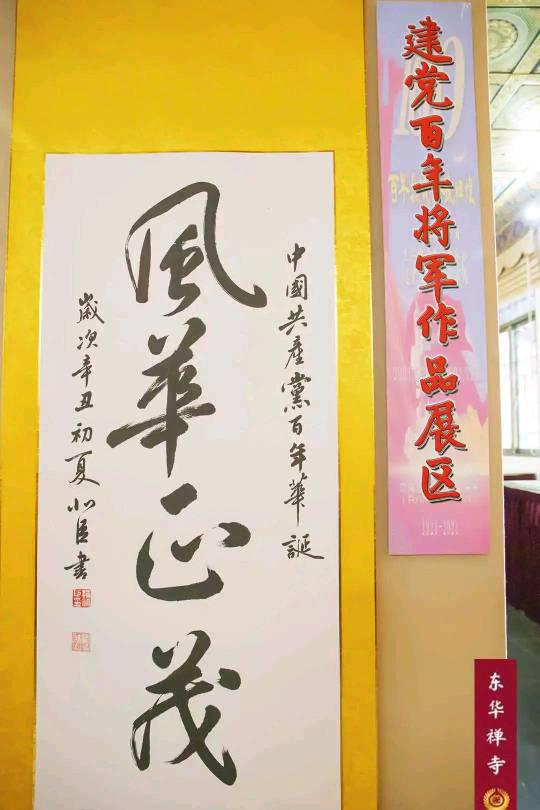 建党百年将军作品展区
1921-2021
中國共產黨百年華誕
風華正茂
歲次辛丑初夏
書
东华禅寺